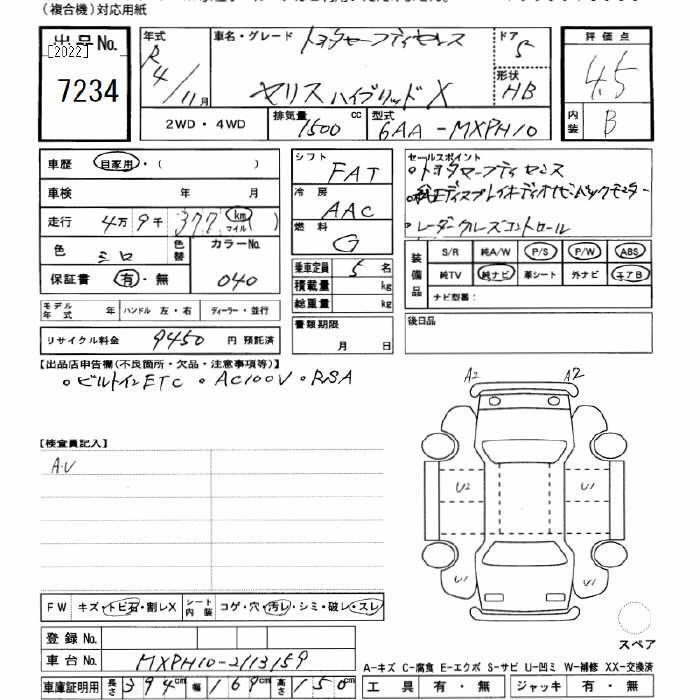 (複合機)対応用紙
出品No.
[2022]
7234
年式
R4/11月
車名・グレード
トヨタセーフティセンス
ヤリスハイブリッドX
ドア
5
形状
HB
評価点
4.5
内装
B
2WD・4WD
排気量 1500 cc
型式 6AA-MXPH10
車歴 自家用・( )
車検 年 月
走行 4万9千377 km マイル )
色 シロ
色替
カラーNo. 040
保証書 有・無
モデル年式 年 ハンドル 左・右 ディーラー・並行
リサイクル料金 9450 円 預託済
シフト FAT
冷房 AAC
燃料 G
乗車定員 5 名
積載量 kg
総重量 kg
書類期限
月 日
セールスポイント
・トヨタセーフティセンス
・純正ディスプレイオーディオナビ・バックモニター
・レーダークルーズコントロール
装備品
S/R 純A/W P/S P/W ABS
純TV 純ナビ 革シート 外ナビ エアB
ナビ型番:
後日品
【出品店申告欄(不良箇所・欠品・注意事項等)】
・ビルトインETC ・AC100V ・RSA
【検査員記入】
A.U
A2 A2
U2 U1
U1 U1
FW キズ・トビ石・割レX シート内装 コゲ・穴・汚レ・シミ・破レ・スレ
スペア
登録No.
車台No. MXPH10-2113159
A-キズ C-腐食 E-エクボ S-サビ U-凹ミ W-補修 XX-交換済
車庫証明用 長さ 394cm 幅 169cm 高さ 150cm
工具 有・無 ジャッキ 有・無